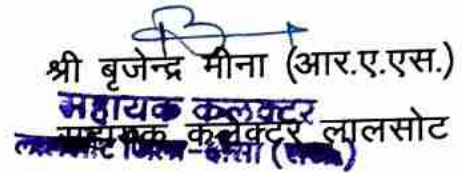 श्री बृजेन्द्र मीना (आर.ए.एस.)
सहायक कलक्टर
सहायक कलेक्टर लालसोट
जिला-दौसा (राज०)